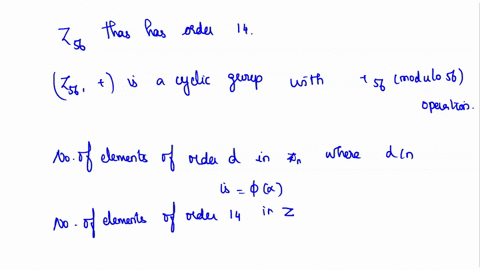 Z56 thas has order 14.
(Z56, +) is a cyclic gerep with +56 (modulo 56)
operation.
No. of elements of order d in Zn where d|n
is = φ(α)
No. of elements of order 14 in Z